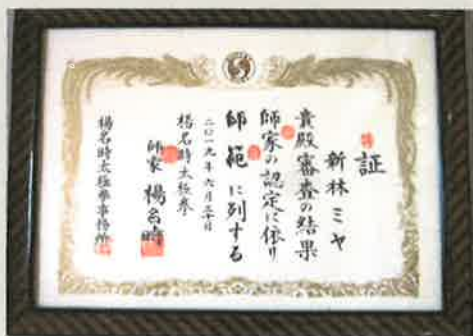 証
新林 ミヤ
貴殿審査の結果
師家の認定に依り
師範に列する
二〇一九年六月三十日
楊名時太極拳
師家 楊名時
楊名時太極拳事務所